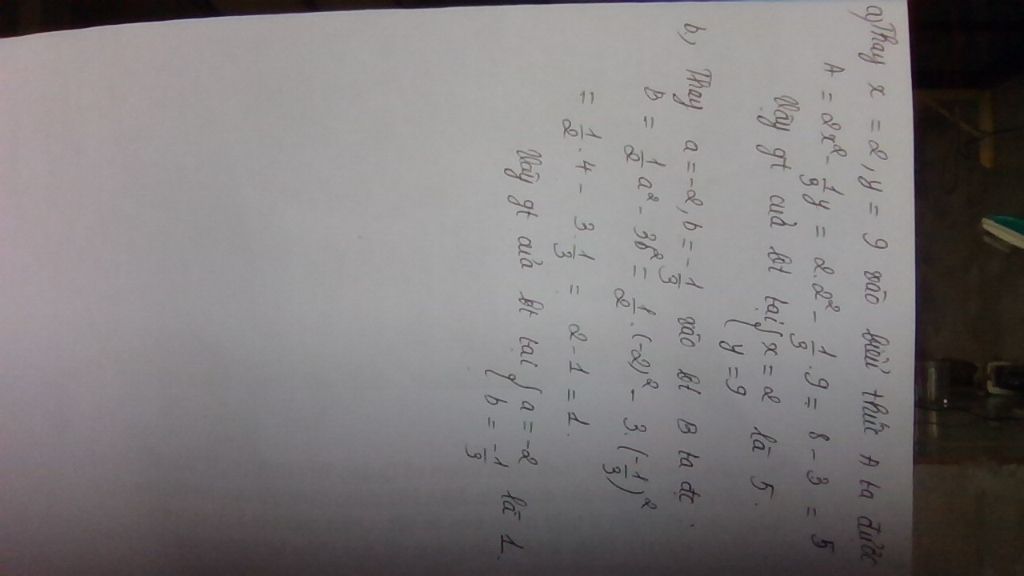 a) Thay x = 2, y = 9 vào biểu thức A ta được
A = 2x² - 1/9 y = 2.2² - 1/9 . 9 = 8 - 3 = 5
Vậy gt của bt tại { x = 2 là 5.
y = 9
b, Thay a = -2, b = -1/3 vào bt B ta đc.
B = 1/2 a² - 3b² = 1/2 . (-2)² - 3 (-1/3)²
= 1/2 . 4 - 3 1/3 = 2 - 1 = 1.
Vậy gt của bt tại { a = -2 là 1.
b = -1/3